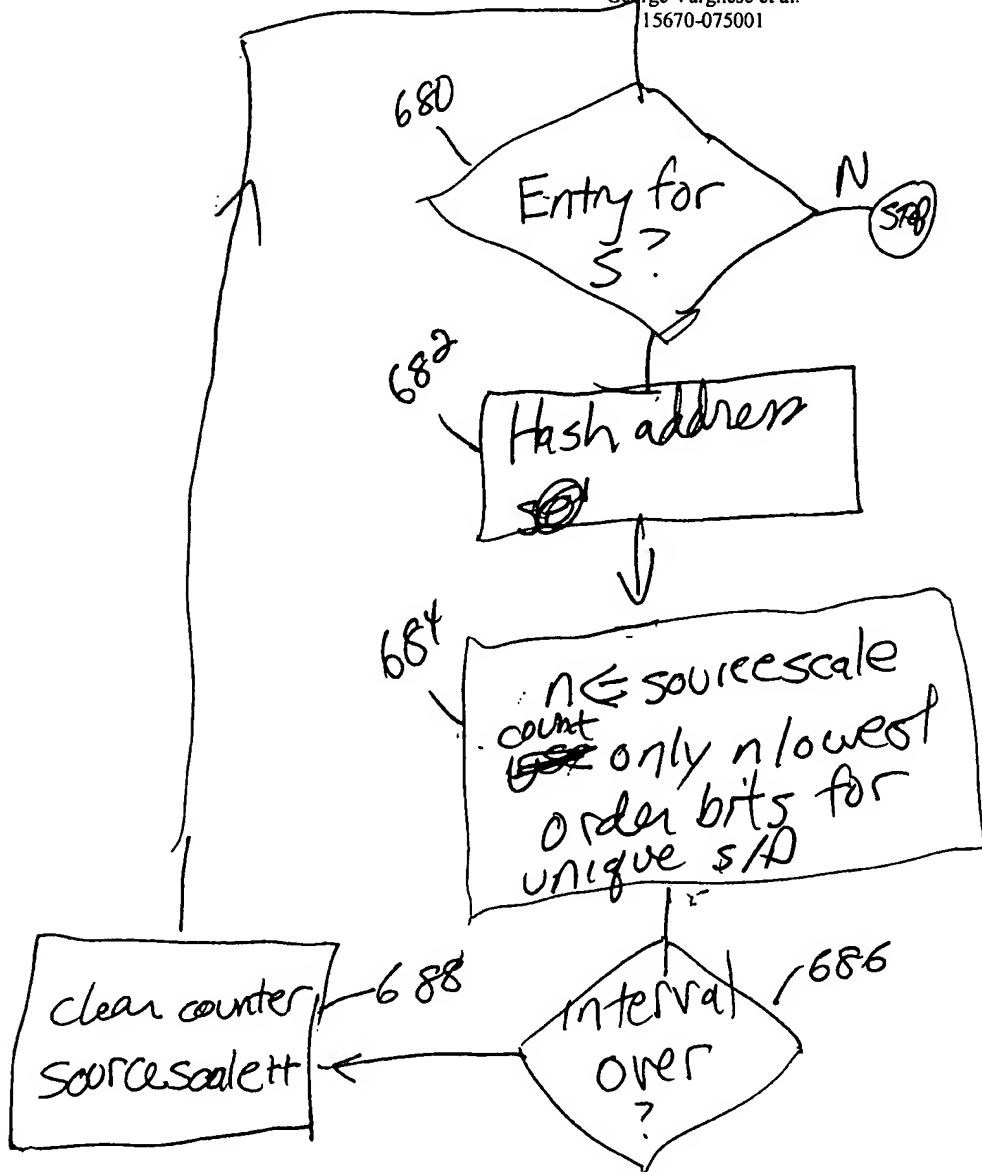 15670-075001
680
Entry for
S?
N
STOP
682
Hash address
684
n⇐sourcescale
count only n lowest
order bits for
unique S/D
686
interval
over
?
688
clear counter
sourcescale++